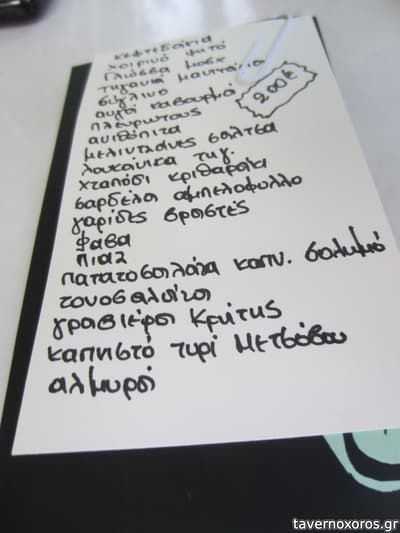 κεφτεδάκια
χοιρινό ψητό
γλώσσα μοσχ
τηγανιά μανιτάρια
σύγλινο
αυγά καβουρμά
πλευρώτους
ανιθόπιτα
μελιντζάνες σάλτσα
λουκάνικα τηγ.
χταπόδι κριθαράκι
σαρδέλα αμπελόφυλλο
γαρίδες βραστές
φάβα
πιάζ
πατατοσαλάτα καπν. σολωμό
τονοσαλάτα
γραβιέρα Κρήτης
καπνιστό τυρί Μετσόβου
αλμυρά
2,00€
tavernoxoros.gr